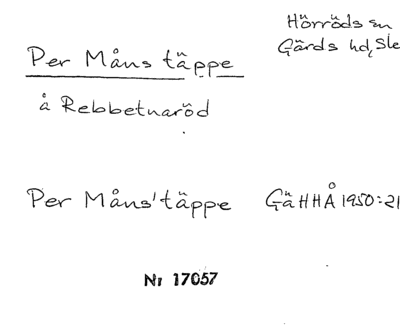 Hörröds sn
Gärds hd, Sk
Per Måns täppe
å Rebbetuaröd
Per Måns' täppe GäHHÅ 1950:21
Nr 17057